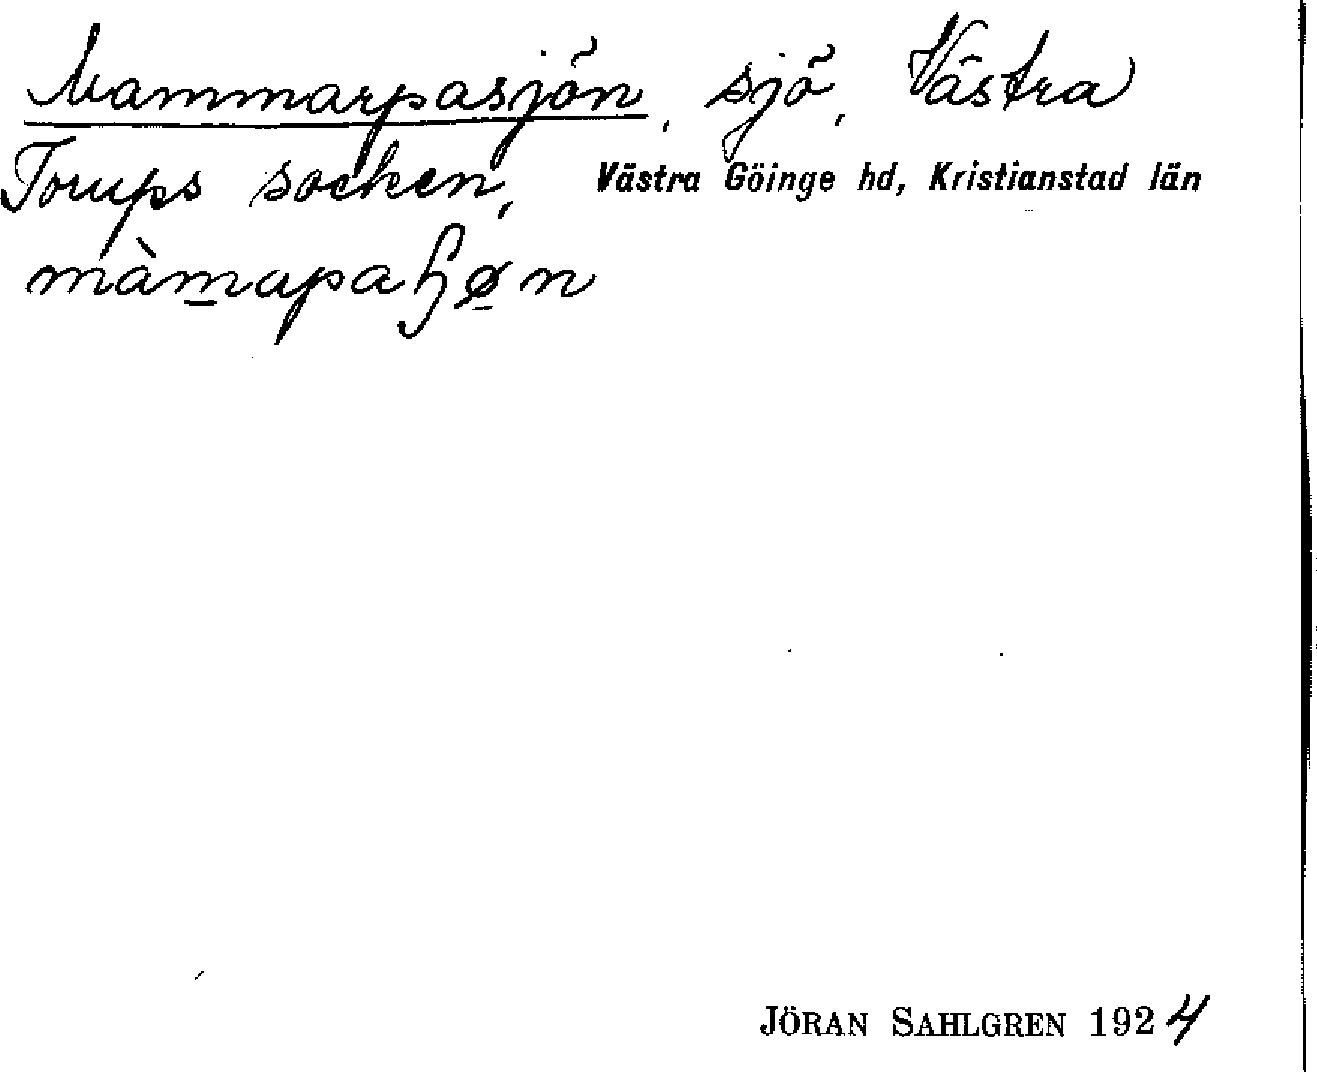 Mammarpasjön, sjö, Västra
Torups socken, Västra Göinge hd, Kristianstad län
màm̲apaɧø̲n
JÖRAN SAHLGREN 1924